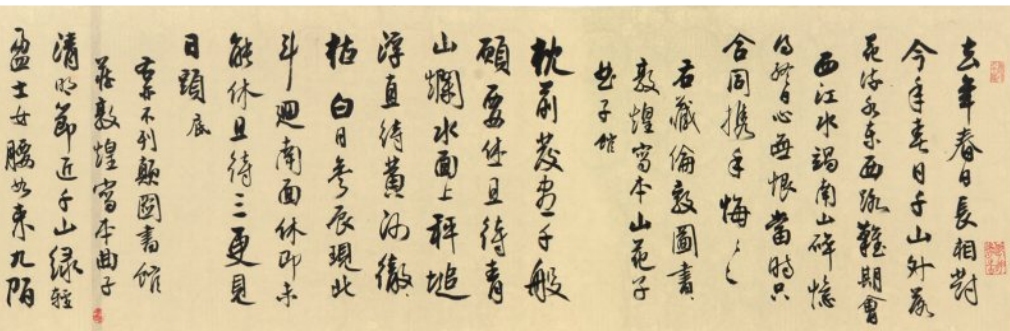 去年春日長相對
今年春日千山外落
花流水東西路難期會
西江水竭南山碎憶
得終日心無恨當時只
合同攜手悔〻
右藏倫敦圖書
敦煌寫本山花子
曲子館
枕前發盡千般
願要休且待青
山爛水面上秤塠
浮直待黃河徹
枯白日參辰現北
斗迴南面休即未
能休且待三更見
日頭底
右亦不列顛圖書館
藏敦煌寫本曲子
清明節近千山綠輕
盈士女腰如束九陌